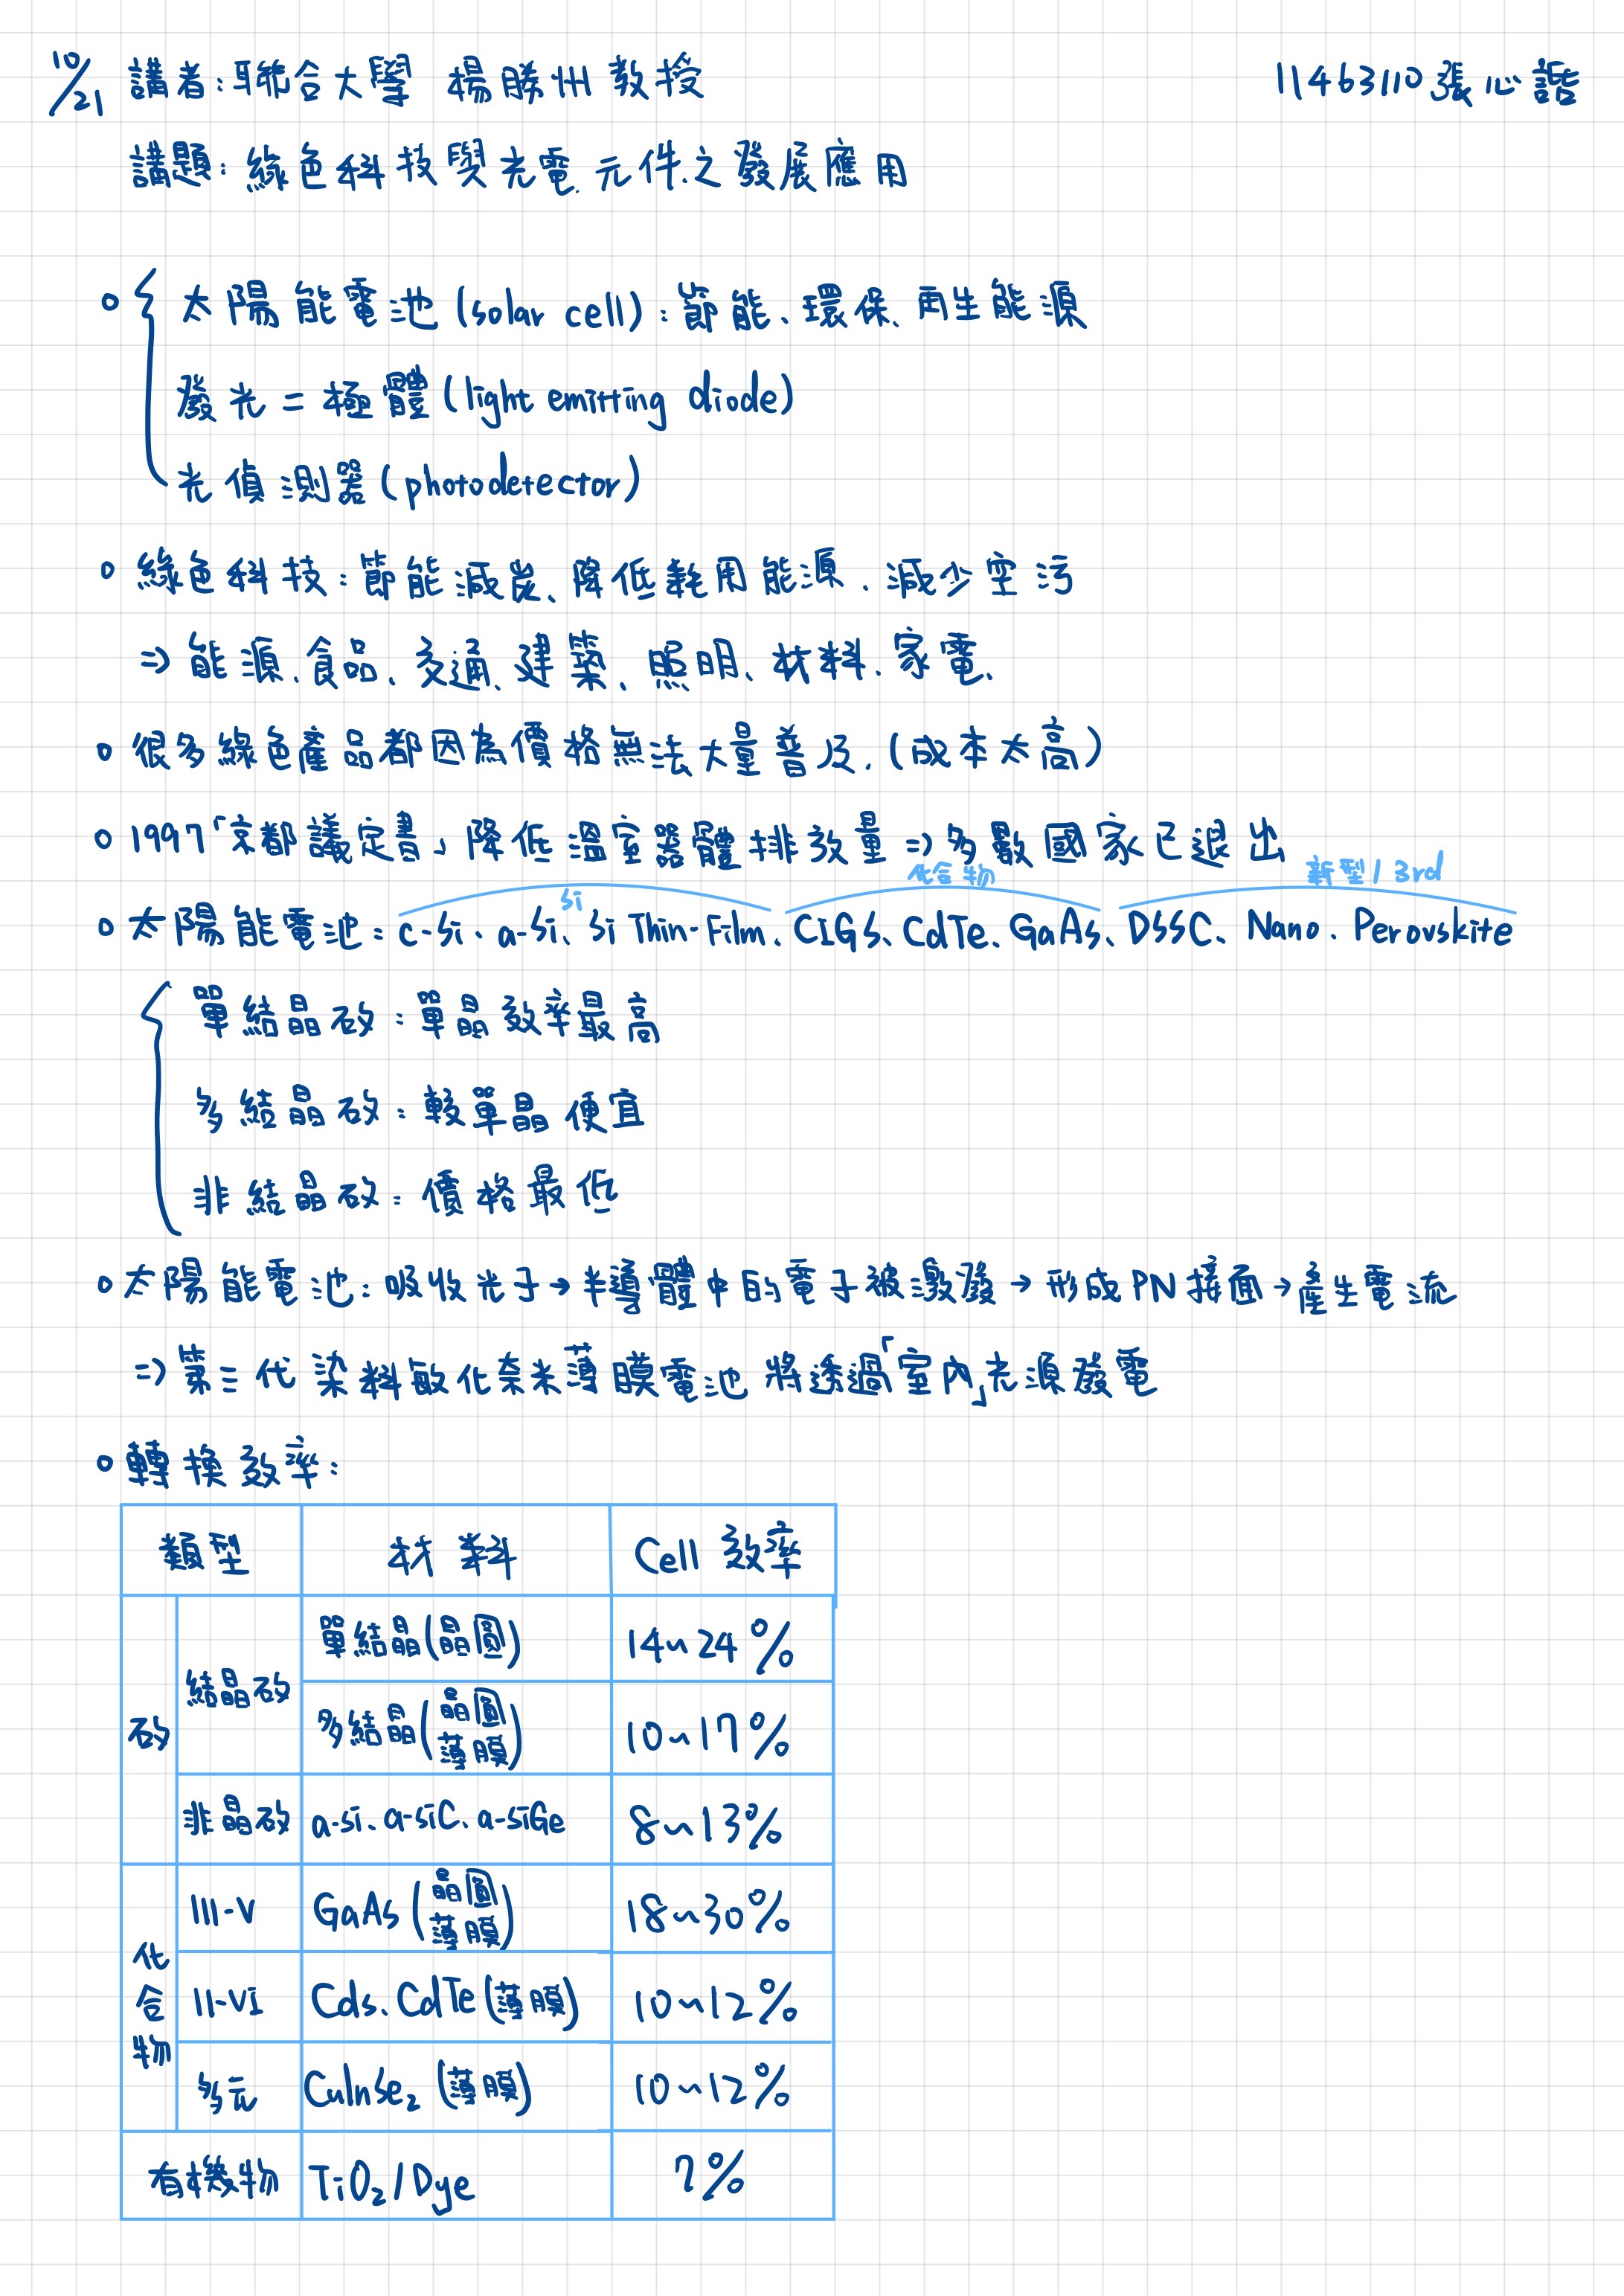 10/21 講者:聯合大學 楊勝州 教授
11463110 張心諧
講題:綠色科技與光電元件之發展應用
太陽能電池(solar cell):節能、環保、再生能源
發光二極體(light emitting diode)
光偵測器(photodetector)
綠色科技:節能減炭、降低耗用能源、減少空污
⇒能源、食品、交通、建築、照明、材料、家電、
很多綠色產品都因為價格無法大量普及.(成本太高)
1997「京都議定書」降低溫室器體排放量⇒多數國家已退出
si 化合物 新型/3rd
太陽能電池:c-Si、a-Si、Si Thin-Film、CIGS、CdTe、GaAs、DSSC、Nano、Perovskite
單結晶矽:單晶效率最高
多結晶矽:較單晶便宜
非結晶矽:價格最低
太陽能電池:吸收光子→半導體中的電子被激發→形成PN接面→產生電流
⇒第三代染料敏化奈米薄膜電池將透過「室內」光源發電
轉換效率:
類型 材料 Cell 效率
矽 結晶矽 單結晶(晶圓) 14~24%
多結晶(晶圓 薄膜) 10~17%
非晶矽 a-si、a-siC、a-siGe 8~13%
化合物 III-V GaAs(晶圓 薄膜) 18~30%
II-VI Cds、CdTe(薄膜) 10~12%
多元 CuInSe₂(薄膜) 10~12%
有機物 TiO₂/Dye 7%